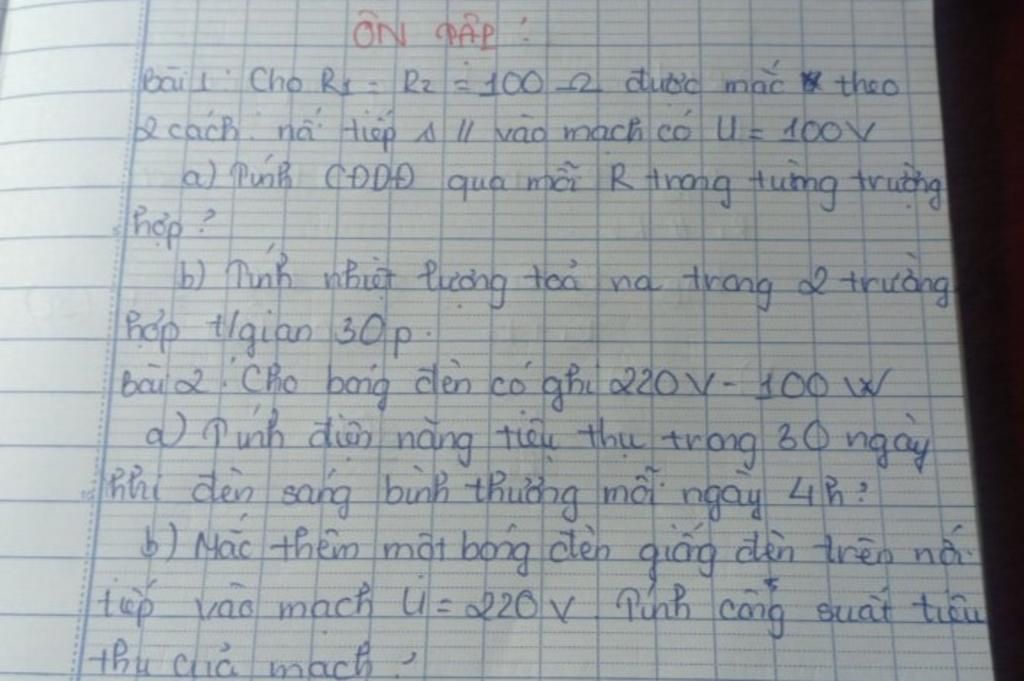 ÔN TẬP:
Bài 1: Cho R1 = R2 = 100 Ω được mắc theo
2 cách: nối tiếp & // vào mạch có U = 100V
a) Tính CĐDĐ qua mỗi R trong từng trường
hợp?
b) Tính nhiệt lượng toả ra trong 2 trường
hợp t/gian 30p.
Bài 2: Cho bóng đèn có ghi 220V - 100W
a) Tính điện năng tiêu thụ trong 30 ngày
khi đèn sáng bình thường mỗi ngày 4h?
b) Mắc thêm một bóng đèn giống đèn trên nối
tiếp vào mạch U = 220V Tính công suất tiêu
thụ của mạch?